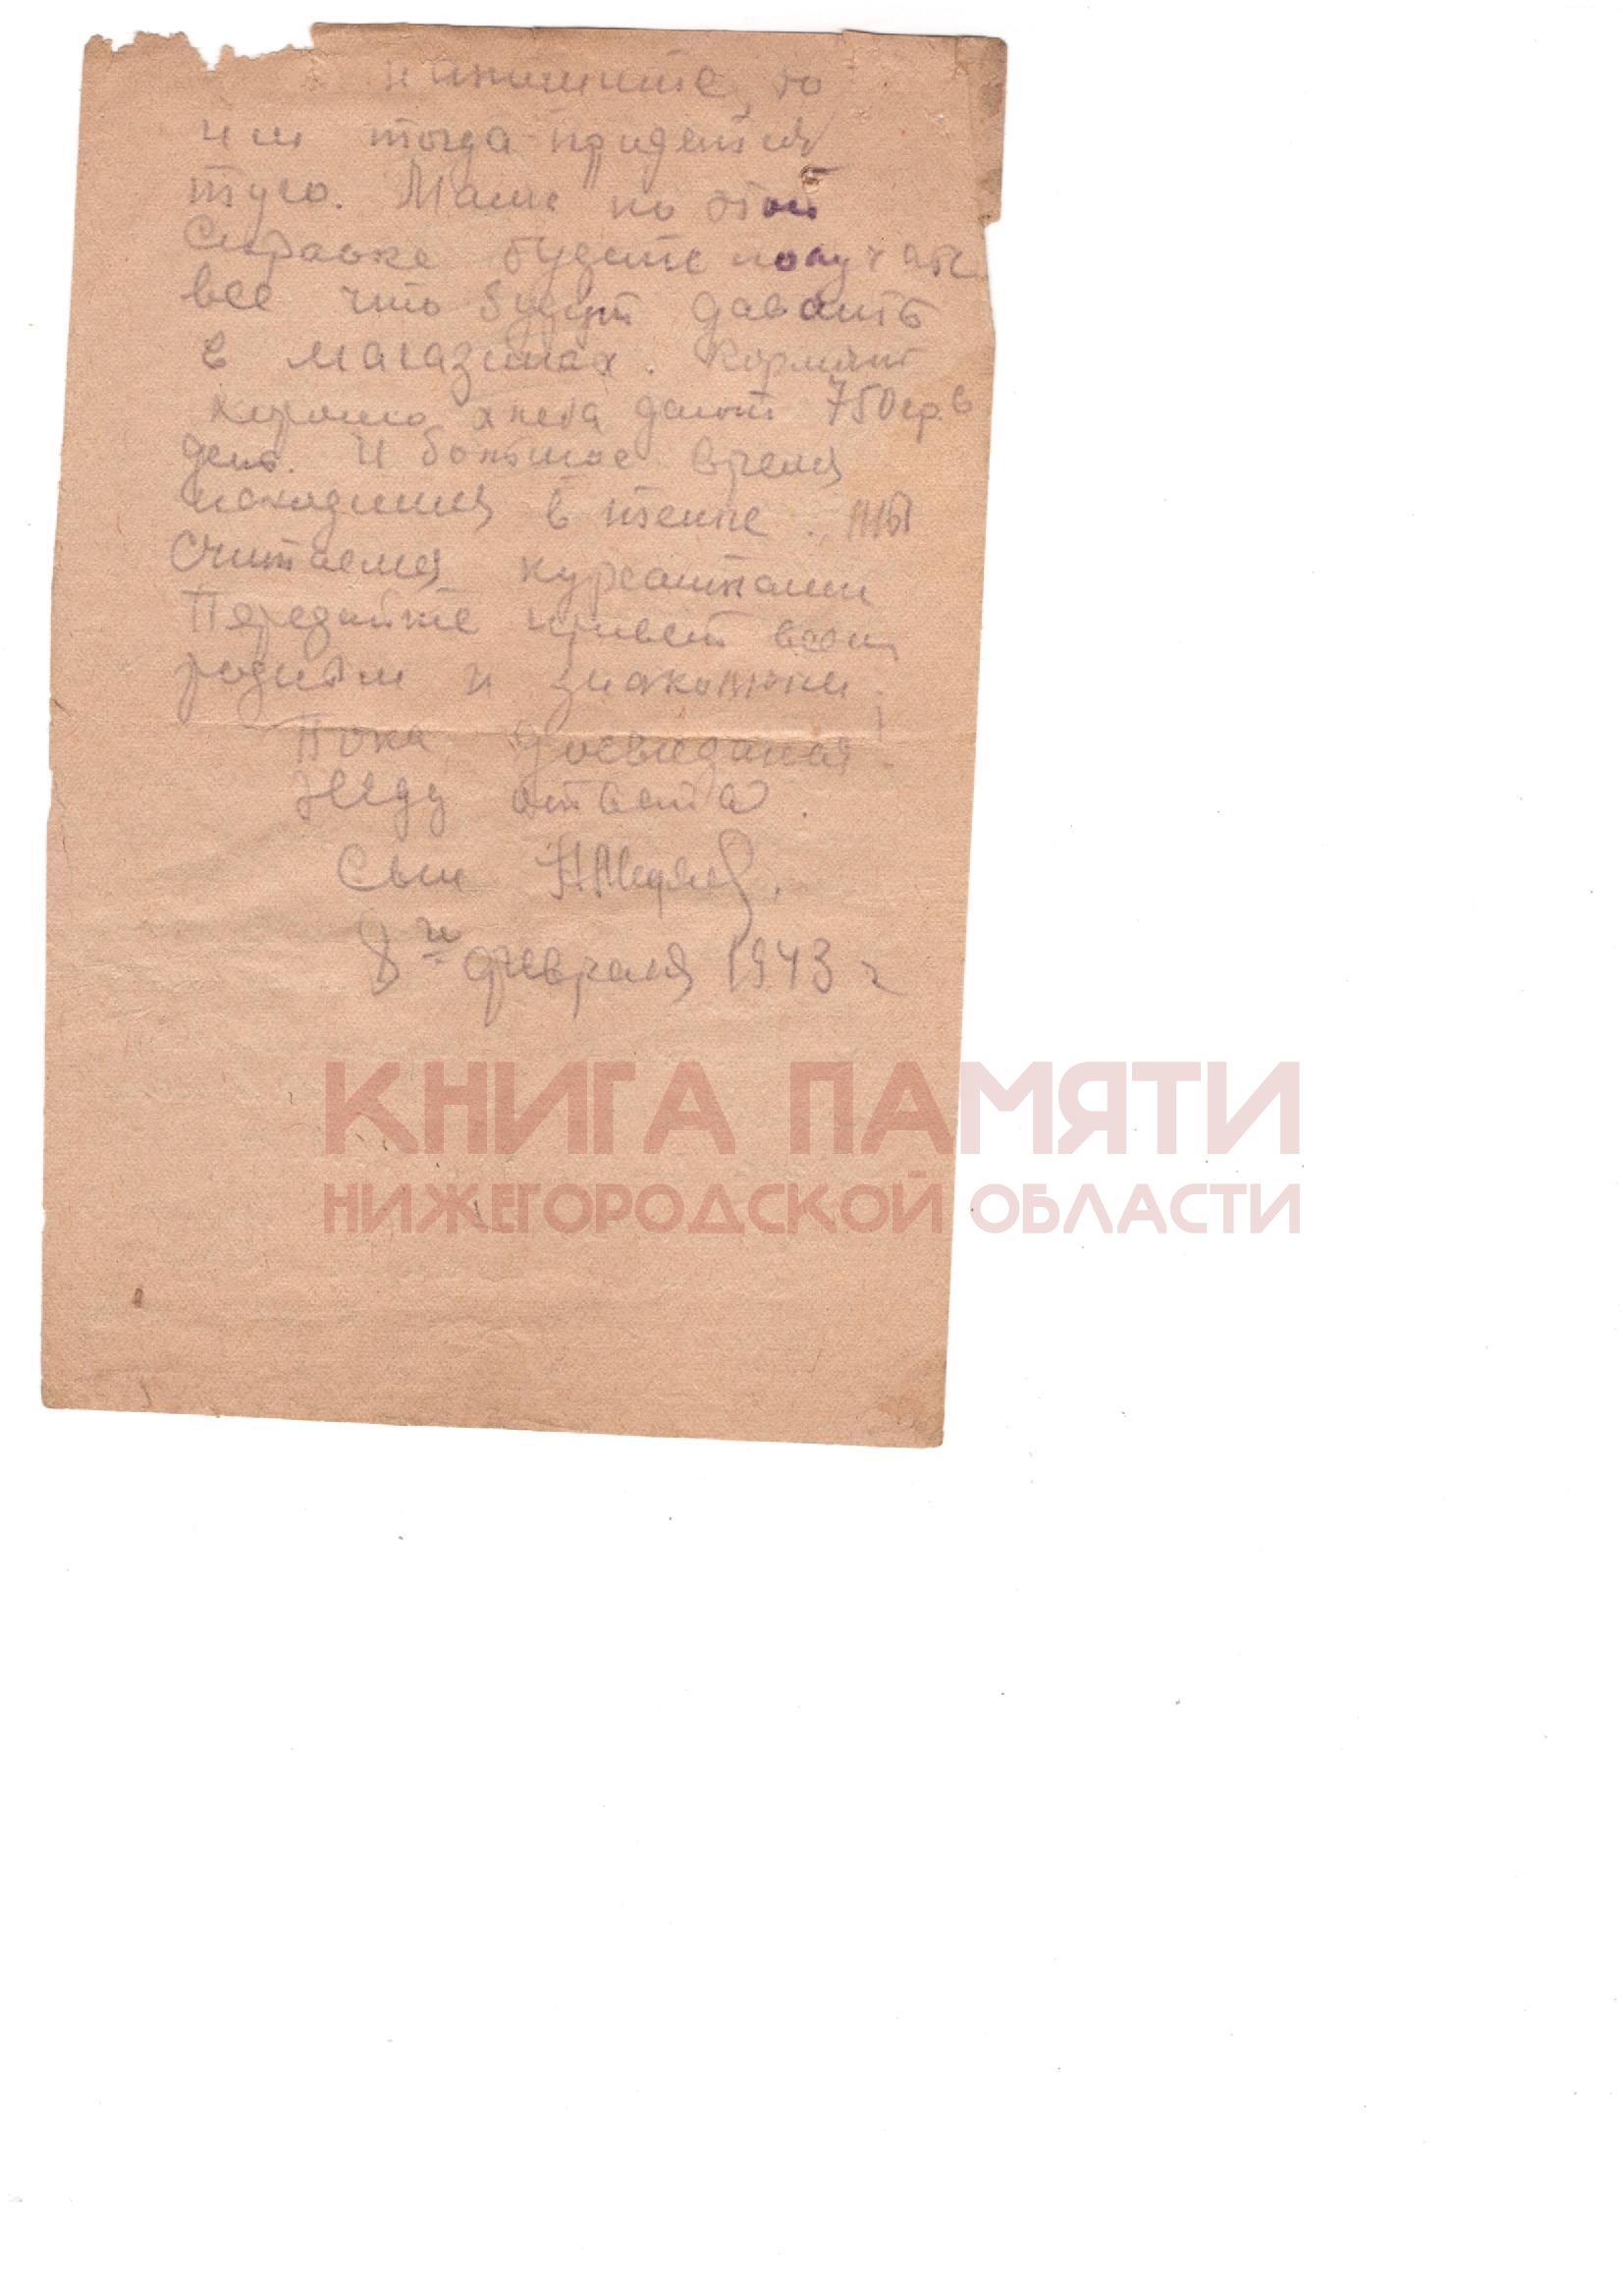 напишите, то
им тогда придется
туго. Мама по этой
справке будете получать
все что будут давать
в магазинах. Кормят
хорошо хлеба дают 750 гр. в
день. И большое время
находимся в тепле. Мы
считаемся курсантами
Передайте привет всем
родным и знакомым.
Пока досвидания
Жду ответа.
Сын
8го февраля 1943 г
КНИГА ПАМЯТИ
НИЖЕГОРОДСКОЙ ОБЛАСТИ